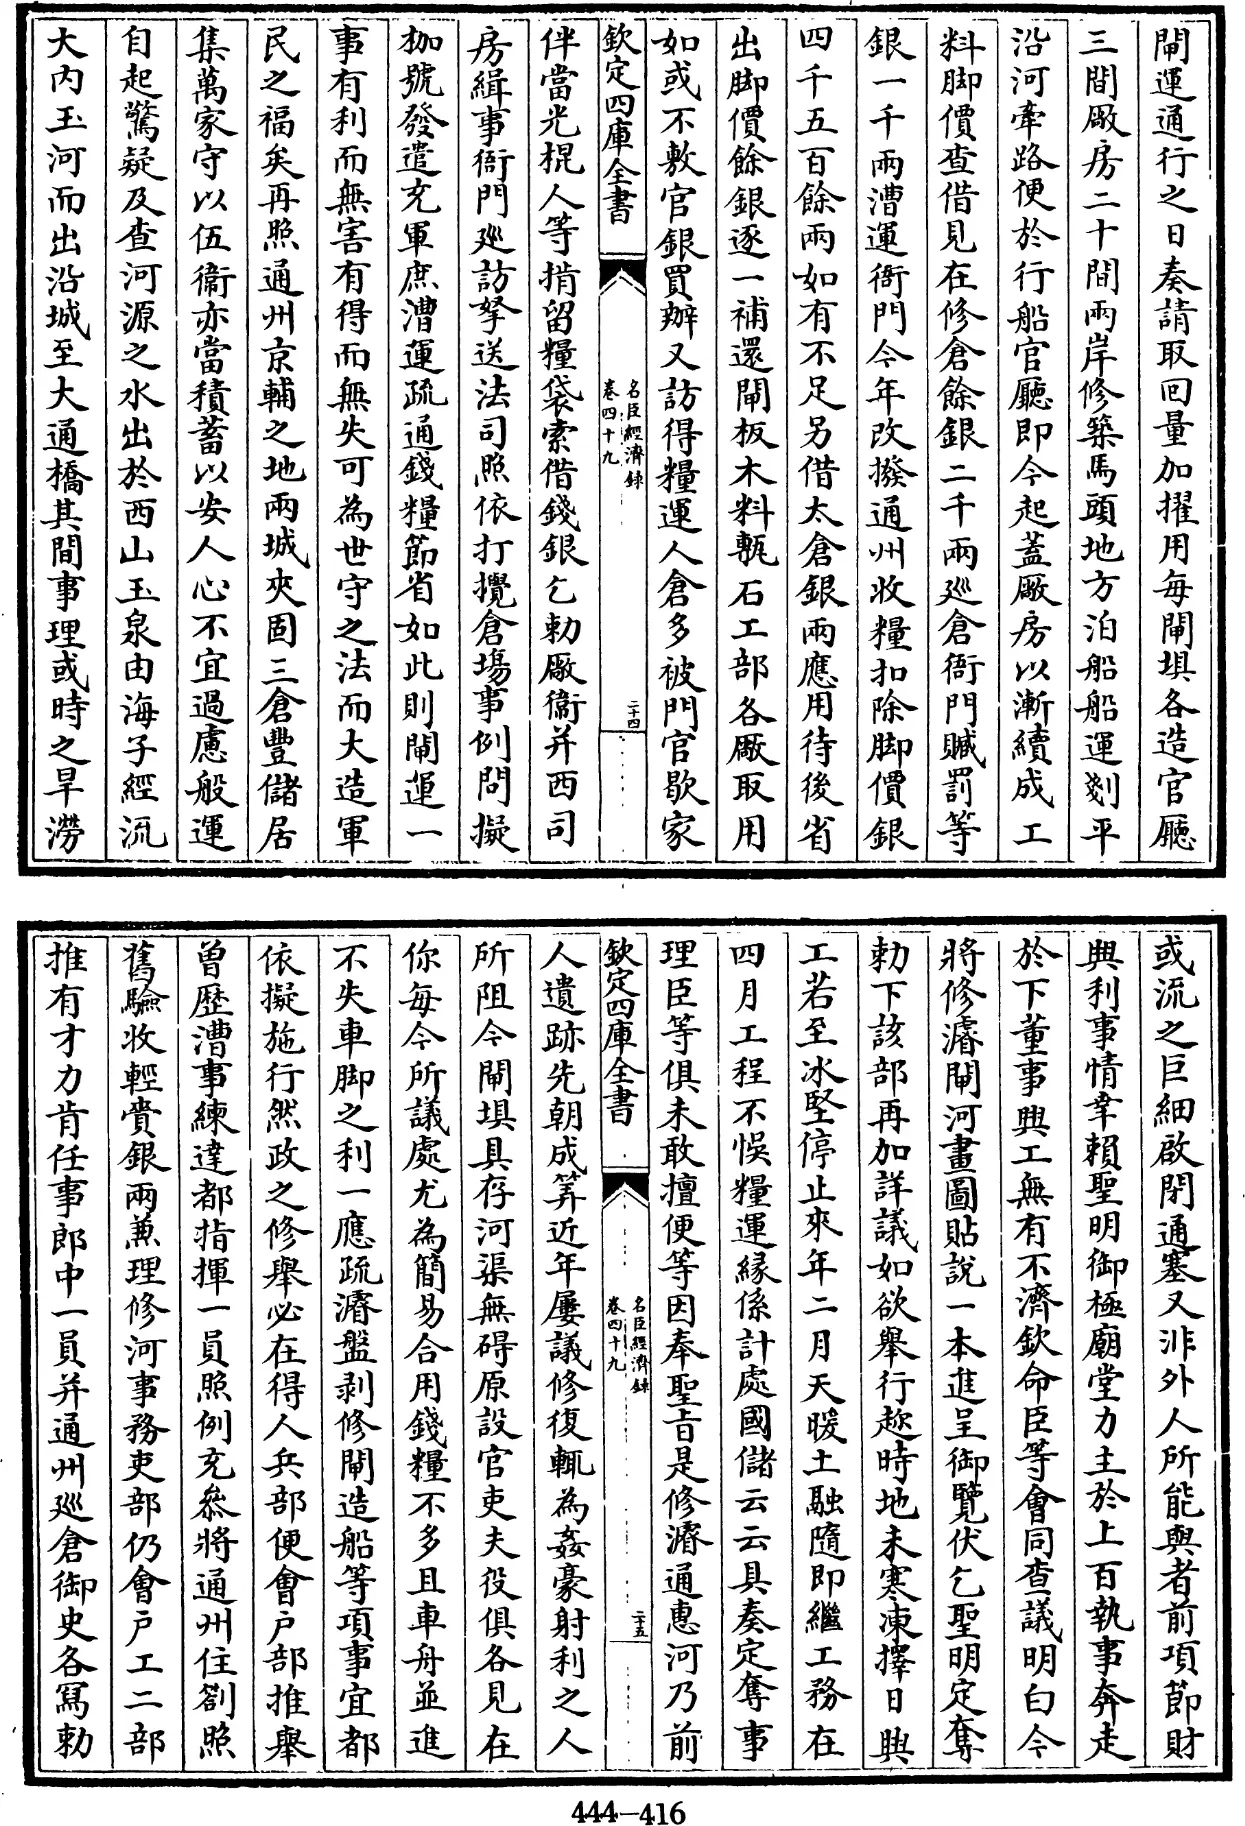 閘運通行之日奏請取回量加擢用每閘埧各造官廳
三間厰房二十間兩岸修築馬頭地方泊船船運剗平
沿河牽路便於行船官廳即今起蓋厰房以漸續成工
料脚價查借見在修倉餘銀二千兩廵倉衙門贓罰等
銀一千兩漕運衙門今年改撥通州收糧扣除脚價銀
四千五百餘兩如有不足另借太倉銀兩應用待後省
出脚價餘銀逐一補還閘板木料甎石工部各厰取用
如或不敷官銀買辦又訪得糧運人倉多被門官歇家
欽定四庫全書
名臣經濟錄
卷四十九
二十四
伴當光棍人等掯留糧袋索借錢銀乞勅厰衞并西司
房緝事衙門廵訪拏送法司照依打攪倉場事例問擬
枷號發遣充軍庶漕運疏通錢糧節省如此則閘運一
事有利而無害有得而無失可為世守之法而大造軍
民之福矣再照通州京輔之地兩城夾固三倉豐儲居
集萬家守以伍衞亦當積蓄以安人心不宜過慮般運
自起驚疑及查河源之水出於西山玉泉由海子經流
大内玉河而出沿城至大通橋其間事理或時之旱澇
或流之巨細啟閉通塞又非外人所能與者前項節財
興利事情幸賴聖明御極廟堂力主於上百執事奔走
於下董事興工無有不濟欽命臣等會同查議明白今
將修濬閘河畫圖貼說一本進呈御覽伏乞聖明定奪
勅下該部再加詳議如欲舉行趂時地未寒凍擇日興
工若至冰堅停止來年二月天暖土融隨即繼工務在
四月工程不悞糧運緣係計處國儲云云具奏定奪事
理臣等俱未敢擅便等因奉聖旨是修濬通惠河乃前
欽定四庫全書
名臣經濟錄
卷四十九
二十五
人遺跡先朝成筭近年屢議修復輒為姦豪射利之人
所阻今閘埧具存河渠無碍原設官吏夫役俱各見在
你每今所議處尤為簡易合用錢糧不多且車舟並進
不失車脚之利一應疏濬盤剥修閘造船等項事宜都
依擬施行然政之修舉必在得人兵部便會户部推舉
曾歴漕事練達都指揮一員照例充叅將通州住劄照
舊驗收輕賫銀兩兼理修河事務吏部仍會户工二部
推有才力肯任事郎中一員并通州廵倉御史各冩勅
444-416